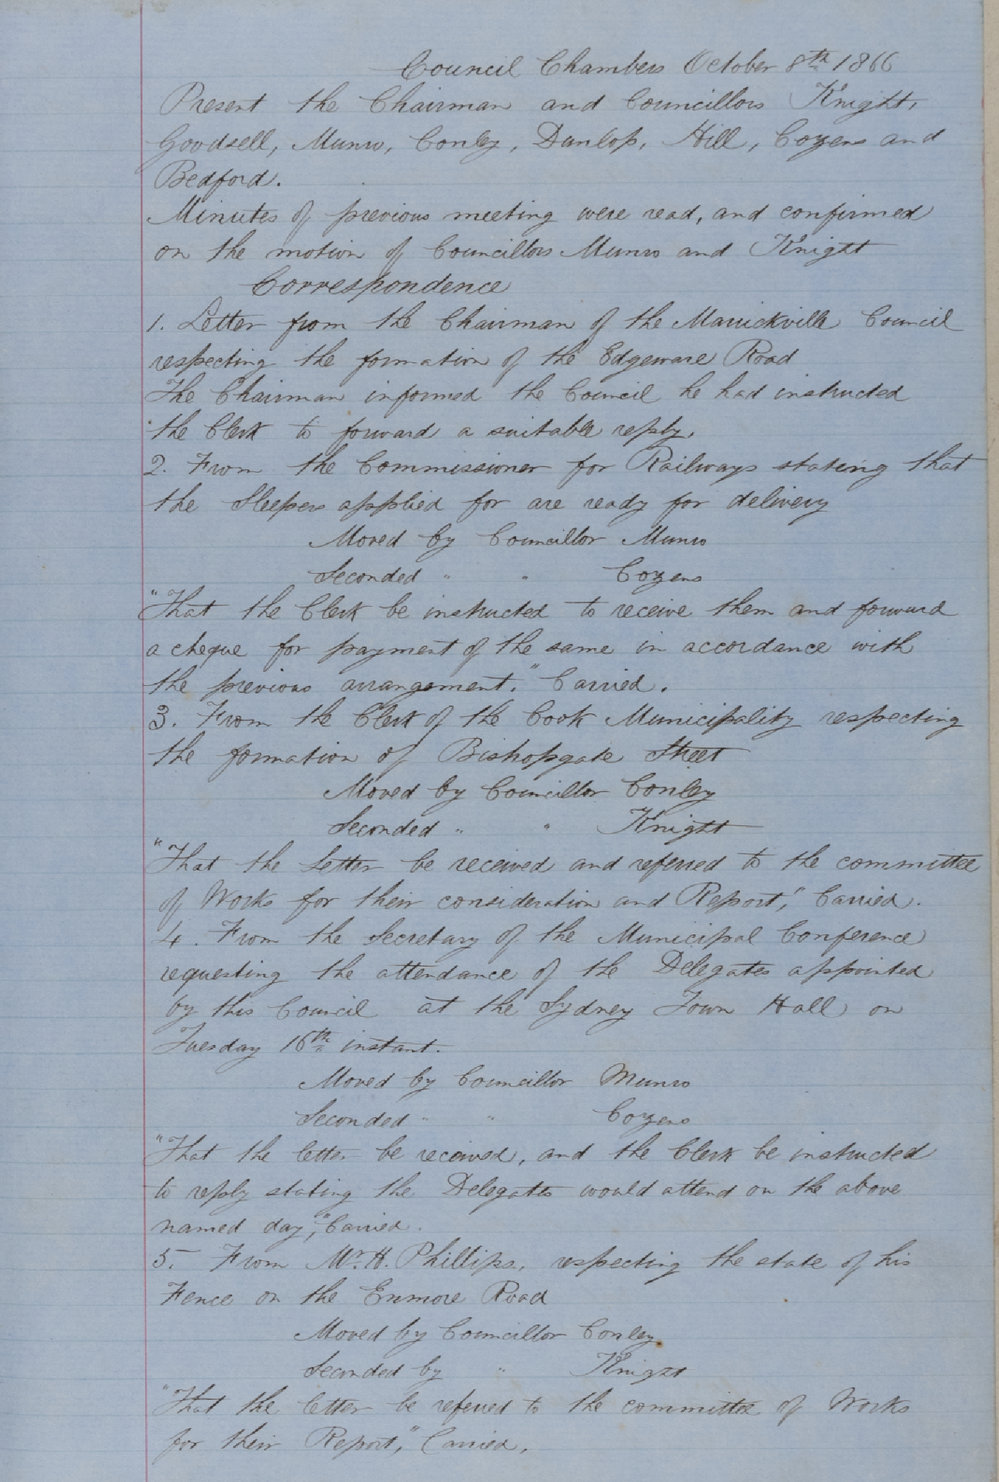 Council Chambers October 8th 1866
Present the Chairman and Councillors Knight,
Goodsell, Munro, Conley, Dunlop, Hill, Cozens and
Bedford.
Minutes of previous meeting were read, and confirmed
on the motion of Councillors Munro and Knight
Correspondence
1. Letter from the Chairman of the Marrickville Council
respecting the formation of the Edgeware Road
The Chairman informed the Council he had instructed
the Clerk to forward a suitable reply.
2. From the Commissioner for Railways stating that
the Sleepers applied for are ready for delivery
Moved by Councillor Munro
Seconded " " Cozens
"That the Clerk be instructed to receive them and forward
a cheque for payment of the same in accordance with
the previous arrangement." Carried.
3. From the Clerk of the Cook Municipality respecting
the formation of Bishopgate Street
Moved by Councillor Conley
Seconded " " Knight
"That the Letter be received and referred to the committee
of Works for their consideration and Report," Carried.
4. From the Secretary of the Municipal Conference
requesting the attendance of the Delegates appointed
by this Council at the Sydney Town Hall on
Tuesday 16th instant.
Moved by Councillor Munro
Seconded " " Cozens
"That the letter be received, and the Clerk be instructed
to reply stating the Delegates would attend on the above
named day," Carried.
5. From Mr. H. Phillips, respecting the state of his
Fence on the Enmore Road
Moved by Councillor Conley.
Seconded by " Knight
"That the letter be referred to the committee of Works
for their Report," Carried.